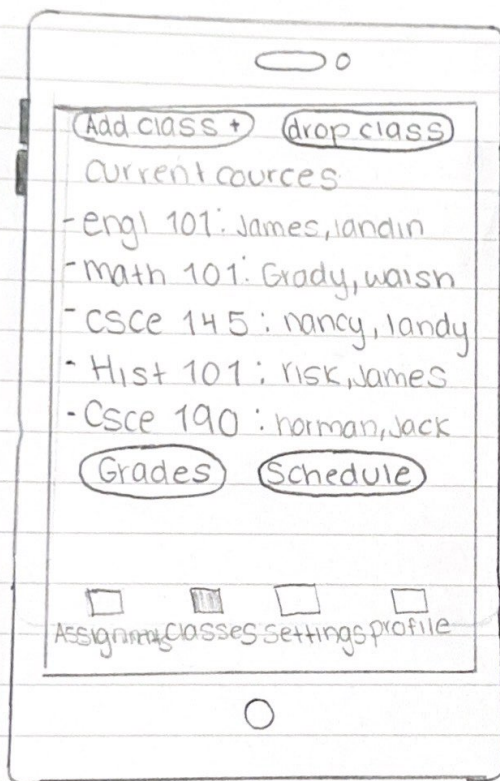 Add class + drop class
current cources:
- engl 101: James, landin
- math 101: Grady, walsh
- csce 145: nancy, landy
- Hist 101: risk, James
- Csce 190: norman, Jack
Grades Schedule
Assignments classes settings profile